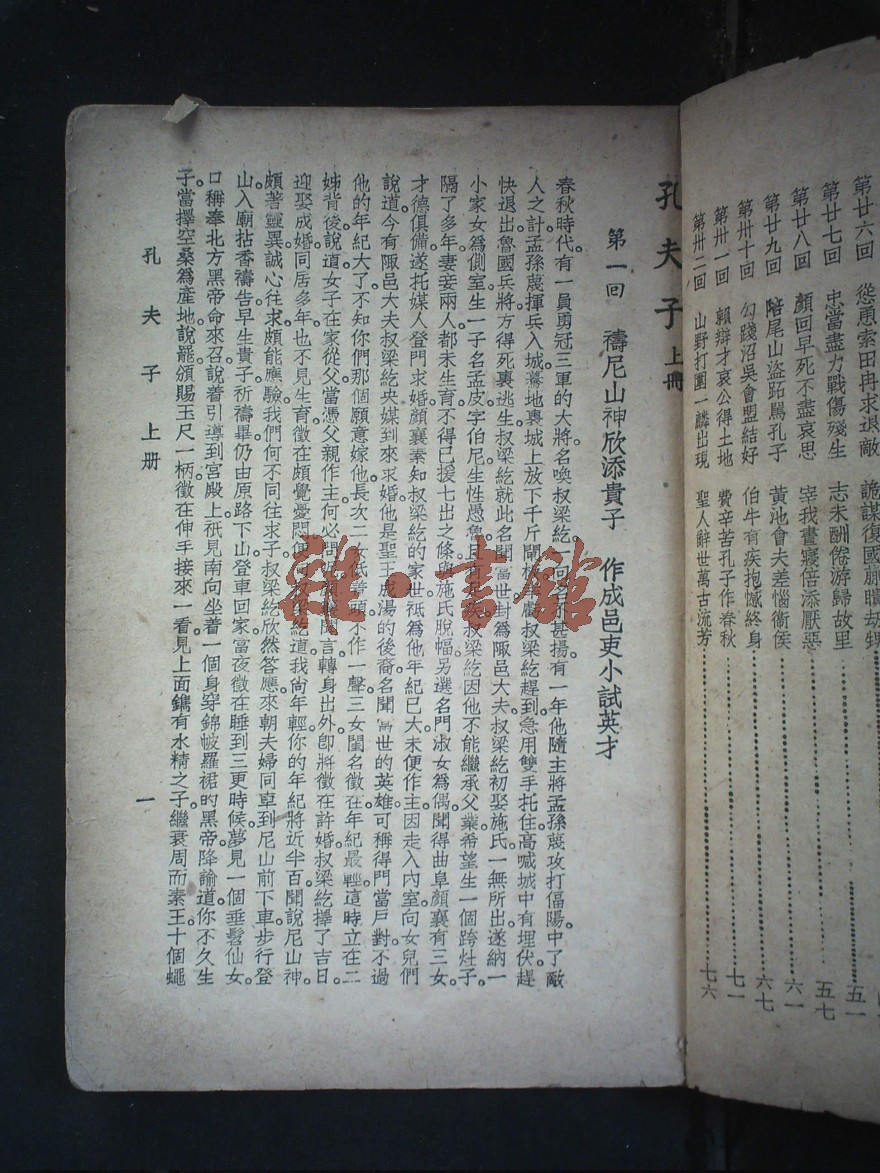 第廿六回 慫恿索田冉求退敵 詭謀復國蒯聵劫
第廿七回 忠當盡力戰傷殘生 志未酬倦游歸故里 五一
第廿八回 顏回早死不盡哀思 宰我晝寢倍添厭惡 五七
第廿九回 陪尾山盜跖罵孔子 黃池會夫差惱衞侯 六一
第卅十回 勾踐沼吳會盟結好 伯牛有疾抱憾終身 六七
第卅一回 賴辯才哀公得土地 費辛苦孔子作春秋 七一
第卅二回 山野打圍一麟出現 聖人辭世萬古流芳 七六
孔夫子 上册
第一回 禱尼山神欣添貴子 作成邑吏小試英才
春秋時代。有一員勇冠三軍的大將。名喚叔梁紇。一向名不甚揚。有一年。他隨主將孟孫蔑攻打偪陽。中了敵
人之計。孟孫蔑揮兵入城。驀地裏城上放下千斤閘板。叔梁紇趕到。急用雙手托住。高喊城中有埋伏。趕
快退出。魯國兵將方得死裏逃生。叔梁紇就此名聞當世。封爲陬邑大夫。叔梁紇初娶施氏。一無所出。遂納一
小家女爲側室。生一子名孟皮。字伯尼。生性愚魯。且有足疾。叔梁紇因他不能繼承父業。希望生一個跨灶子。
隔了多年。妻妾兩人。都未生育。不得已援七出之條。與施氏脫幅。另選名門淑女爲偶。聞得曲阜顏襄有三女。
才德俱備。遂托媒人登門求婚。顏襄素知叔梁紇的家世。祇爲他年紀已大。未便作主。因走入內室。向女兒們
說道。今有陬邑大夫叔梁紇央媒到來求婚。他是聖王成湯的後裔。名聞當世的英雄。可稱得門當戶對。不過
他的年紀大了。不知你們那個願意嫁他。長次二女低着頭不作一聲。三女閨名徵在。年紀最輕。這時立在二
姊背後說道。女子在家從父。當憑父親作主。何必問呢。顏襄聞言。轉身出外。卽將徵在許婚。叔梁紇擇了吉日。
迎娶成婚。同居多年。也不見生育。徵在頗覺憂悶。便向叔梁紇道。我尙年輕。你的年紀將近半百。聞說尼山神
頗著靈異。誠心往求。頗能應驗。我們何不同往求子。叔梁紇欣然答應。來朝夫婦同車到尼山前。下車步行登
山。入廟拈香禱告。早生貴子。祈禱畢。仍由原路下山。登車回家。當夜徵在睡到三更時候。夢見一個垂髫仙女。
口稱奉北方黑帝命來召。說着引導到宮殿上。祇見南向坐着一個身穿錦帔羅裙的黑帝。降諭道。你不久生
子。當擇空桑爲產地。說罷。頒賜玉尺一柄。徵在伸手接來一看。見上面鐫有水精之子。繼衰周而素王十個蠅
孔夫子 上册
一
雜·書館